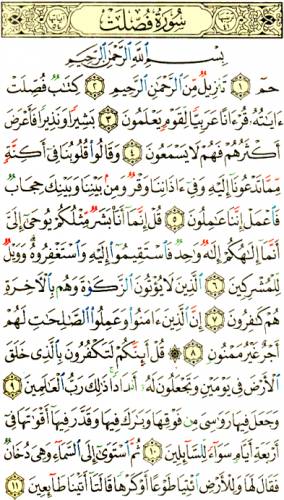 سُورَةُ فُصِّلَتْ
بِسْمِ اللَّهِ الرَّحْمَٰنِ الرَّحِيمِ
حمٓ ١ تَنزِيلٌ مِّنَ الرَّحْمَٰنِ الرَّحِيمِ ٢ كِتَابٌ فُصِّلَتْ
ءَايَاتُهُۥ قُرْءَانًا عَرَبِيًّا لِّقَوْمٍ يَعْلَمُونَ ٣ بَشِيرًا وَنَذِيرًا فَأَعْرَضَ
أَكْثَرُهُمْ فَهُمْ لَا يَسْمَعُونَ ٤ وَقَالُوا قُلُوبُنَا فِىٓ أَكِنَّةٍ
مِّمَّا تَدْعُونَآ إِلَيْهِ وَفِىٓ ءَاذَانِنَا وَقْرٌ وَمِنۢ بَيْنِنَا وَبَيْنِكَ حِجَابٌ
فَاعْمَلْ إِنَّنَا عَامِلُونَ ٥ قُلْ إِنَّمَآ أَنَا۠ بَشَرٌ مِّثْلُكُمْ يُوحَىٰٓ إِلَىَّ
أَنَّمَآ إِلَٰهُكُمْ إِلَٰهٌ وَاحِدٌ فَاسْتَقِيمُوٓا إِلَيْهِ وَاسْتَغْفِرُوهُ وَوَيْلٌ
لِّلْمُشْرِكِينَ ٦ الَّذِينَ لَا يُؤْتُونَ الزَّكَوٰةَ وَهُم بِالْءَاخِرَةِ
هُمْ كَافِرُونَ ٧ إِنَّ الَّذِينَ ءَامَنُوا وَعَمِلُوا الصَّالِحَاتِ لَهُمْ
أَجْرٌ غَيْرُ مَمْنُونٍ ٨ ۞ قُلْ أَئِنَّكُمْ لَتَكْفُرُونَ بِالَّذِى خَلَقَ
الْأَرْضَ فِى يَوْمَيْنِ وَتَجْعَلُونَ لَهُۥٓ أَندَادًا ذَٰلِكَ رَبُّ الْعَالَمِينَ ٩
وَجَعَلَ فِيهَا رَوَاسِىَ مِن فَوْقِهَا وَبَارَكَ فِيهَا وَقَدَّرَ فِيهَآ أَقْوَاتَهَا فِىٓ
أَرْبَعَةِ أَيَّامٍ سَوَآءً لِّلسَّآئِلِينَ ١٠ ثُمَّ اسْتَوَىٰٓ إِلَى السَّمَآءِ وَهِىَ دُخَانٌ
فَقَالَ لَهَا وَلِلْأَرْضِ ائْتِيَا طَوْعًا أَوْ كَرْهًا قَالَتَآ أَتَيْنَا طَآئِعِينَ ١١